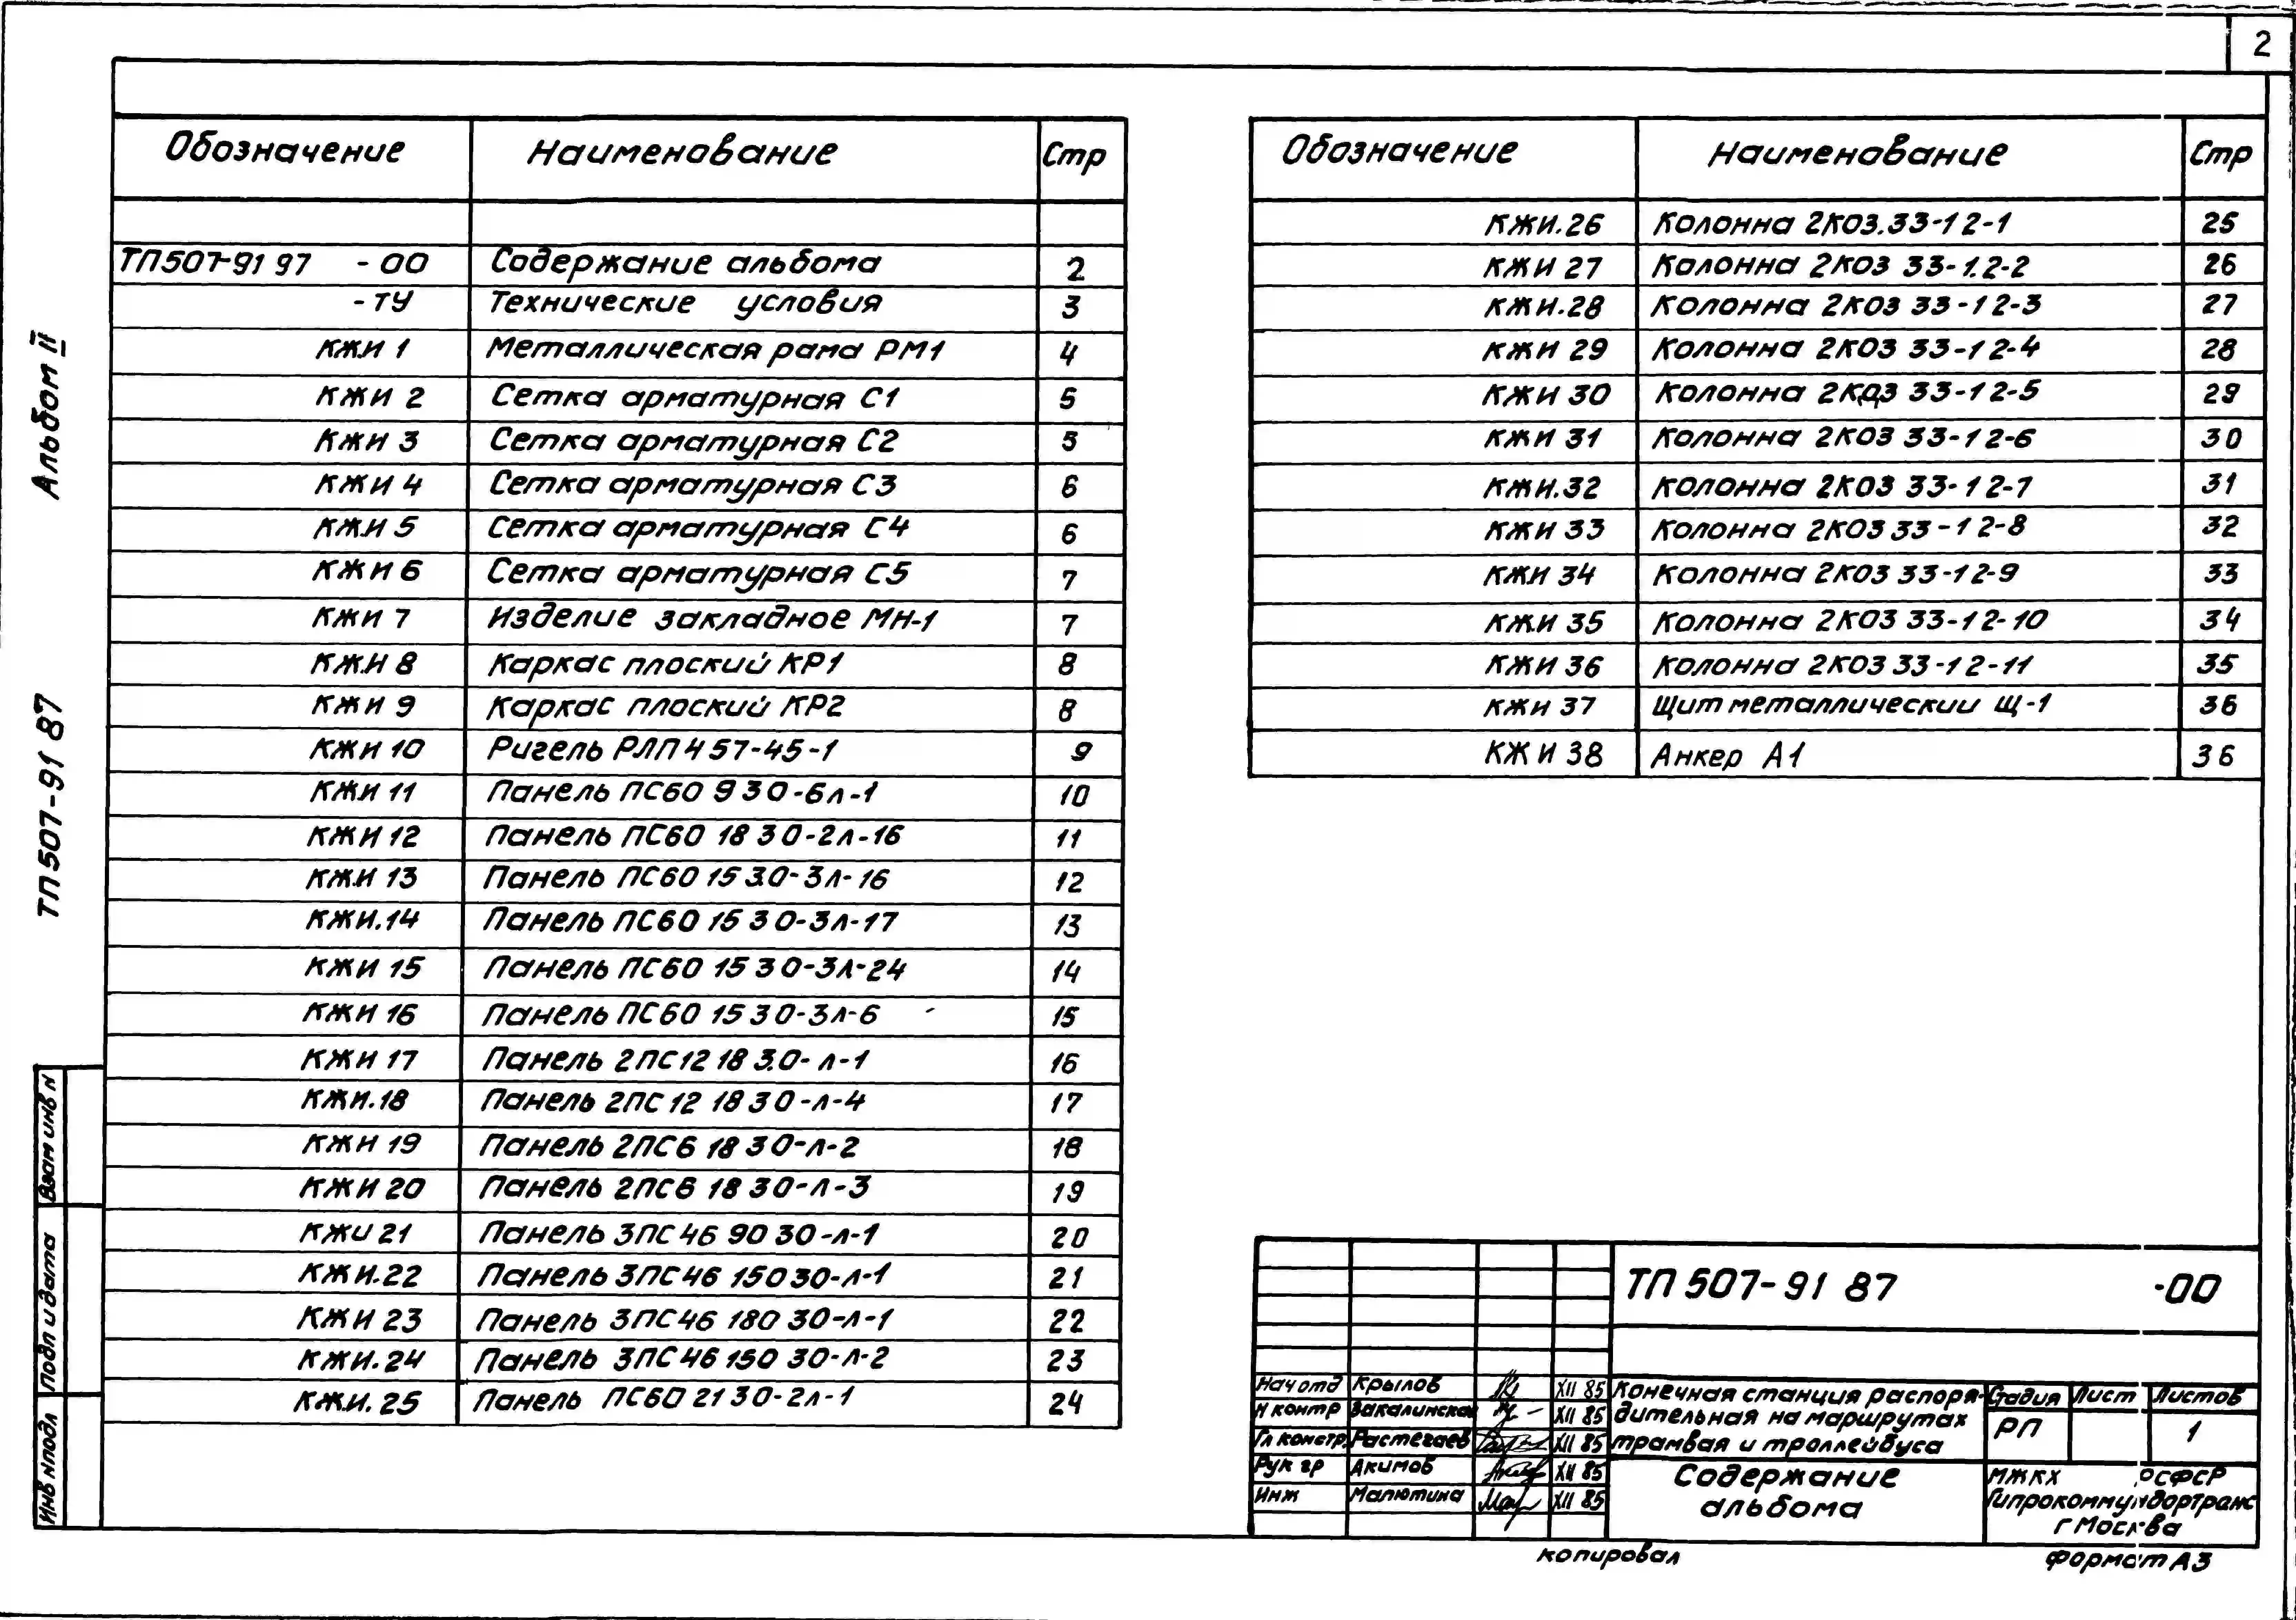 2
Альбом II
ТП507-91 87
Взам инв N
Подп и дата
Инв N подл
Обозначение Наименование Стр
ТП507-91 97 -00 Содержание альбома 2
-ТУ Технические условия 3
КЖИ 1 Металлическая рама РМ1 4
КЖИ 2 Сетка арматурная С1 5
КЖИ 3 Сетка арматурная С2 5
КЖИ 4 Сетка арматурная С3 6
КЖИ 5 Сетка арматурная С4 6
КЖИ 6 Сетка арматурная С5 7
КЖИ 7 Изделие закладное МН-1 7
КЖИ 8 Каркас плоский КР1 8
КЖИ 9 Каркас плоский КР2 8
КЖИ 10 Ригель РЛП4 57-45-1 9
КЖИ 11 Панель ПС60 9 30-6л-1 10
КЖИ 12 Панель ПС60 18 30-2л-16 11
КЖИ 13 Панель ПС60 15 3.0-3л-16 12
КЖИ.14 Панель ПС60 15 30-3л-17 13
КЖИ 15 Панель ПС60 15 30-3л-24 14
КЖИ 16 Панель ПС60 15 30-3л-6 15
КЖИ 17 Панель 2ПС12 18 3.0-л-1 16
КЖИ.18 Панель 2ПС12 18 30-л-4 17
КЖИ 19 Панель 2ПС6 18 30-л-2 18
КЖИ 20 Панель 2ПС6 18 30-л-3 19
КЖИ 21 Панель 3ПС46 90 30-л-1 20
КЖИ.22 Панель 3ПС46 150 30-л-1 21
КЖИ 23 Панель 3ПС46 180 30-л-1 22
КЖИ.24 Панель 3ПС46 150 30-л-2 23
КЖИ.25 Панель ПС60 21 30-2л-1 24
Обозначение Наименование Стр
КЖИ.26 Колонна 2КО3.33-1 2-1 25
КЖИ 27 Колонна 2КО3 33-1.2-2 26
КЖИ.28 Колонна 2КО3 33-1 2-3 27
КЖИ 29 Колонна 2КО3 33-1 2-4 28
КЖИ 30 Колонна 2КО3 33-1 2-5 29
КЖИ 31 Колонна 2КО3 33-1 2-6 30
КЖИ.32 Колонна 2КО3 33-1 2-7 31
КЖИ 33 Колонна 2КО3 33-1 2-8 32
КЖИ 34 Колонна 2КО3 33-1 2-9 33
КЖИ 35 Колонна 2КО3 33-1 2-10 34
КЖИ 36 Колонна 2КО3 33-1 2-11 35
КЖИ 37 Щит металлический Щ-1 36
КЖИ 38 Анкер А1 36
ТП 507-91 87 -00
Нач отд Крылов XII 85
Н контр Вакалинская XII 85
Гл констр Растегаев XII 85
Рук гр Акимов XII 85
Инж Малютина XII 85
Конечная станция распоря-
дительная на маршрутах
трамвая и троллейбуса
Стадия Лист Листов
РП 1
Содержание
альбома
МЖКХ РСФСР
Гипрокоммундортранс
г Москва
копировал
формат А3